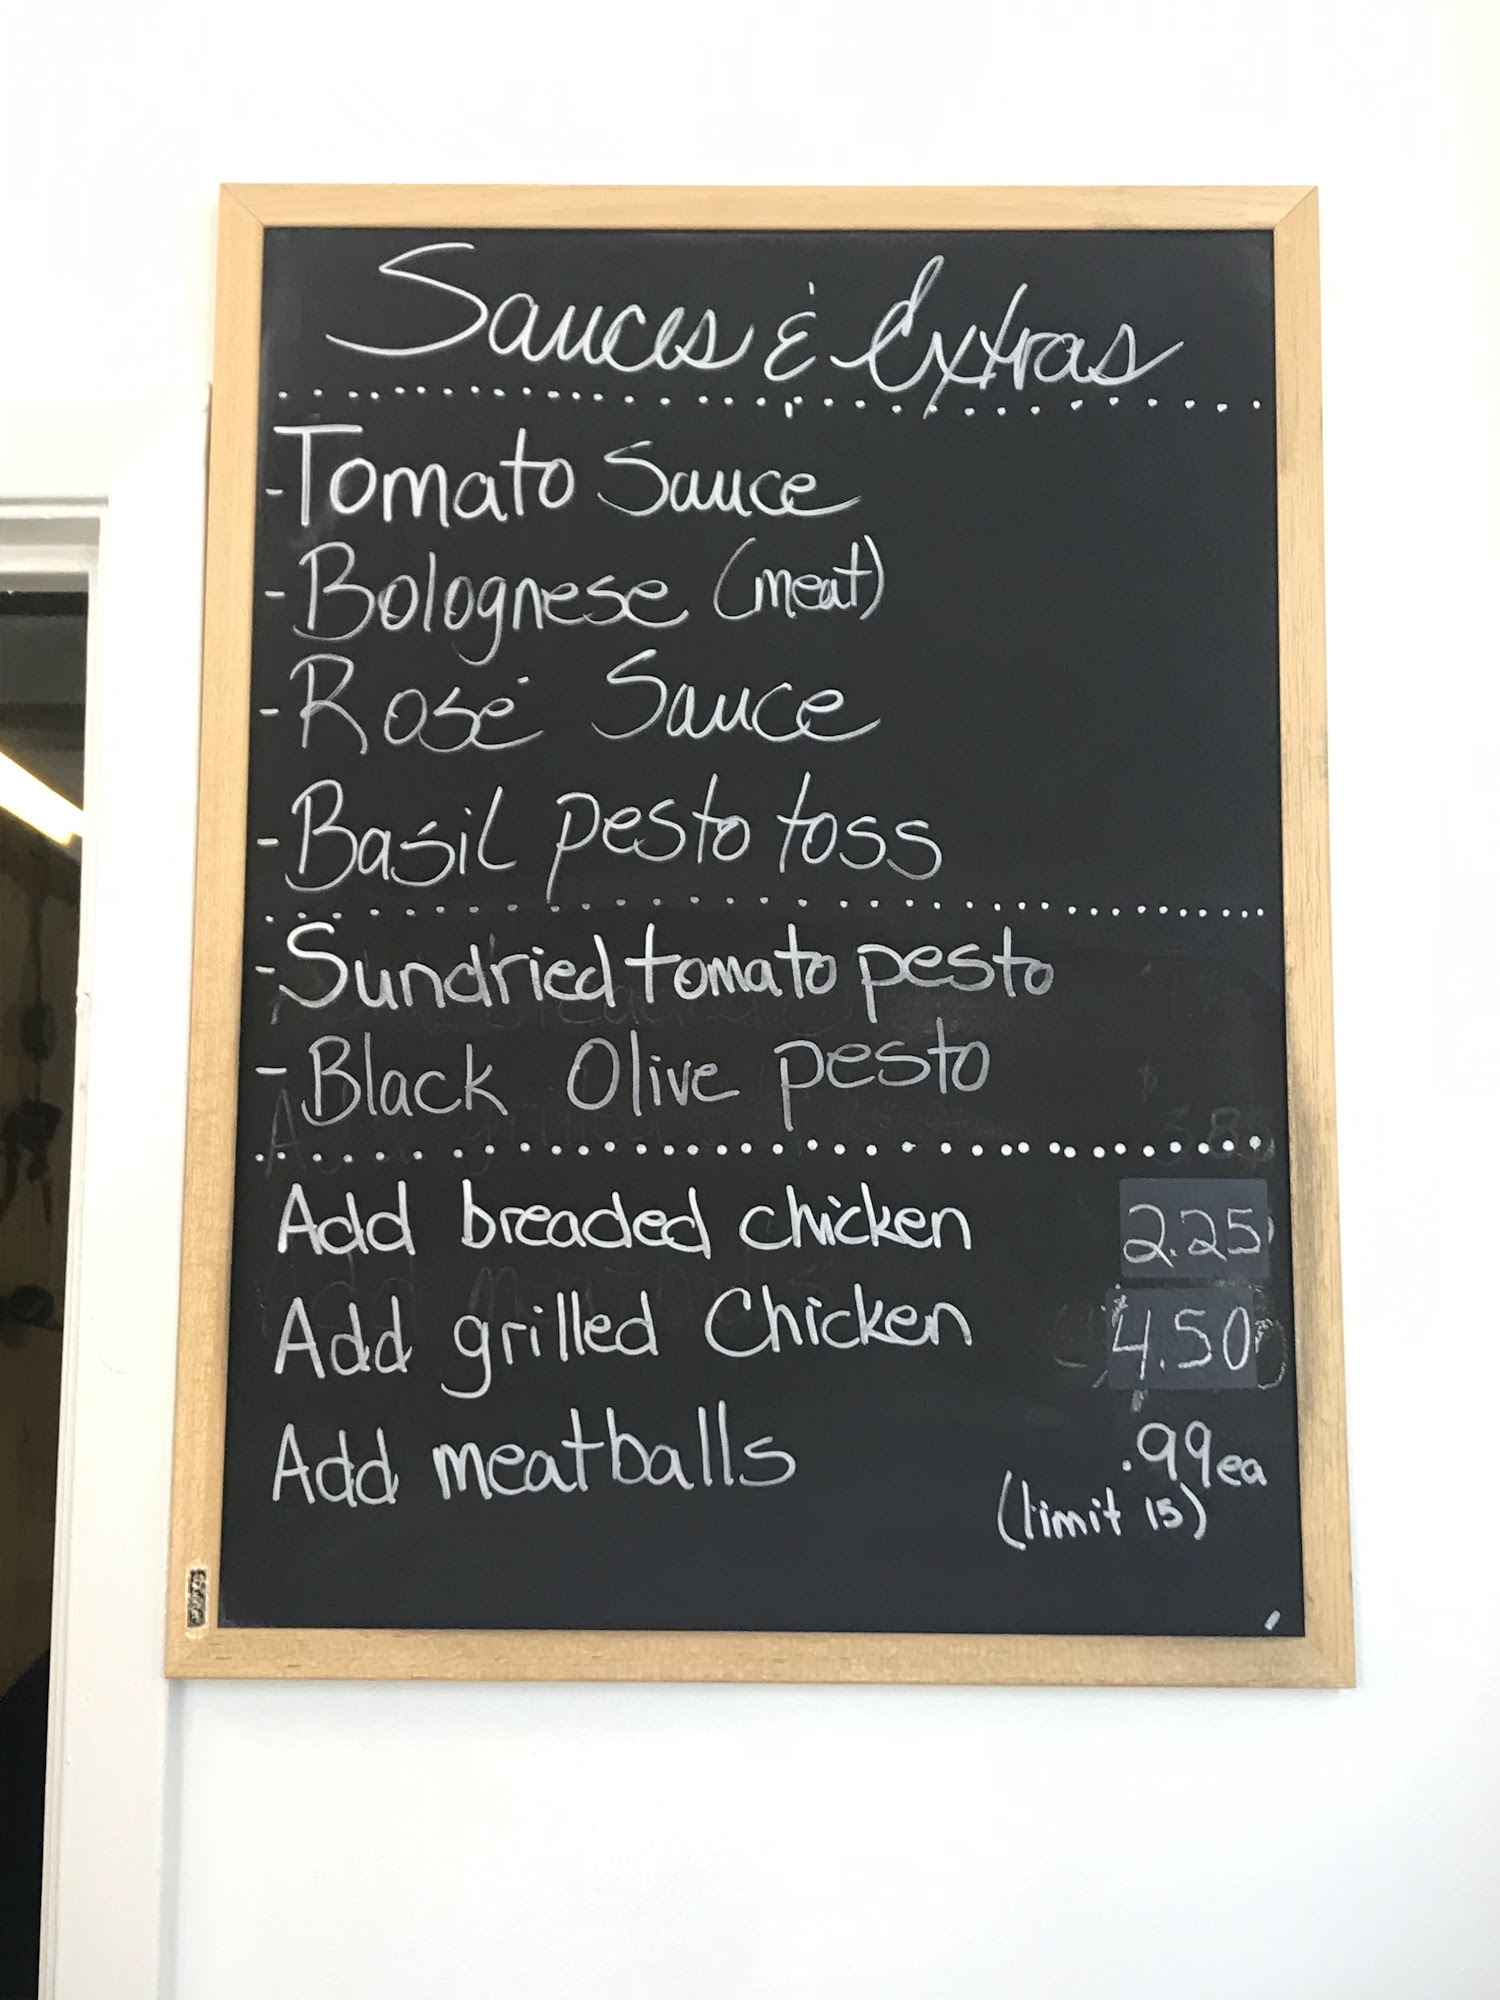 Sauces & Extras
- Tomato Sauce
- Bolognese (meat)
- Rosé Sauce
- Basil pesto toss
- Sundried tomato pesto
- Black Olive pesto
Add breaded chicken 2.25
Add grilled Chicken 4.50
Add meatballs .99ea
(limit 15)